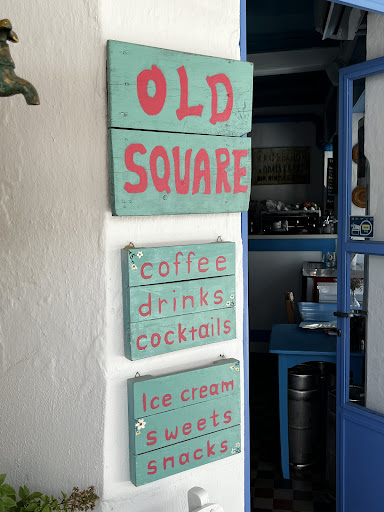 OLD
SQUARE
coffee
drinks
cocktails
Ice cream
sweets
snacks